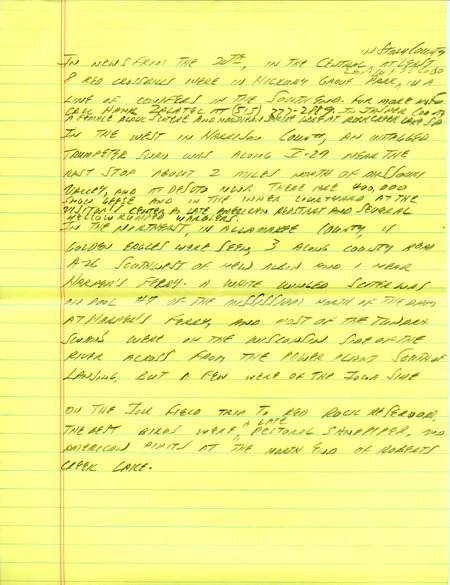 IN STORY COUNTY
IN NEWS FROM THE 20TH, IN THE CENTRAL AT LEAST
8 RED CROSSBILLS WERE IN HICKORY GROVE PARK, IN A
LINE OF CONIFERS IN THE SOUTH END. FOR MORE INFO
CALL HANK ZALATEL AT (515) IN JASPER COUNTY
A FEMALE BLACK SCOTER AND WERE AT ROCK CREEK LAKE
IN THE WEST IN HARRISON COUNTY, AN UNTAGGED
TRUMPETER SWAN WAS ALONG I-29 NEAR THE
REST STOP ABOUT 2 MILES NORTH OF MISSOURI
VALLEY, AND AT DESOTO NWR THERE ARE 400,000
SNOW GEESE AND IN THE INNER COURTYARD AT THE
VISITOR'S CENTER A LATE AMERICAN REDSTART AND SEVERAL
YELLOW RUMPED WARBLERS.
IN THE NORTHEAST, IN ALLAMAKEE COUNTY, 4
GOLDEN EAGLES WERE SEEN, 3 ALONG COUNTY ROAD
A26 SOUTHWEST OF NEW ALBIN AND 1 NEAR
HARPER'S FERRY. A WHITE WINGED SCOTER WAS
ON POOL #9 OF THE MISSISSIPPI NORTH OF THE DAM
AT HARPER'S FERRY, AND MOST OF THE TUNDRA
SWANS WERE ON THE WISCONSIN SIDE OF THE
RIVER ACROSS FROM THE POWER PLANT SOUTH OF
LANSING, BUT A FEW WERE OF THE IOWA SIDE
ON THE IOU FIELD TRIP TO RED ROCK RESERVOIR
THE BEST BIRDS WERE A LATE PECTORAL SANDPIPER, AND
AMERICAN PIPITS AT THE NORTH END OF ROBERTS
CREEK LAKE.